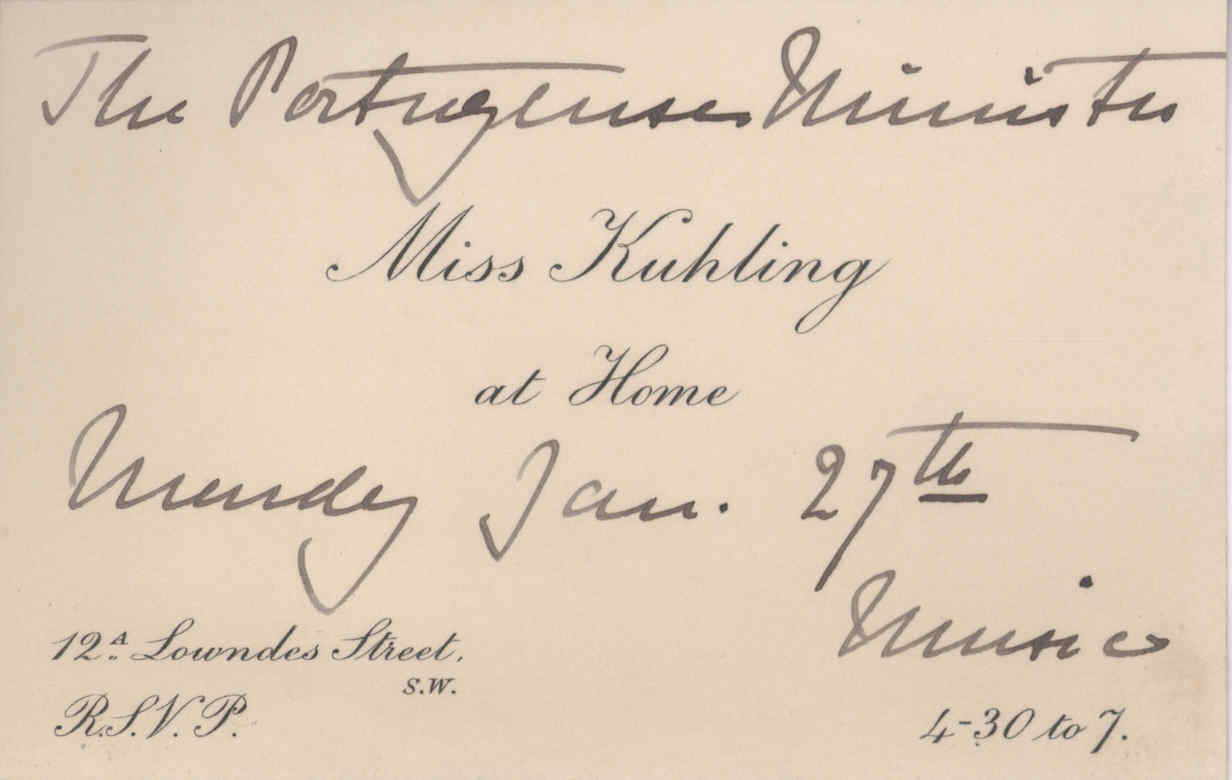 The Portuguese Minister
Miss Kuhling
at Home
Monday Jan. 27th
Music
12A Lowndes Street,
S.W.
R.S.V.P.
4-30 to 7.